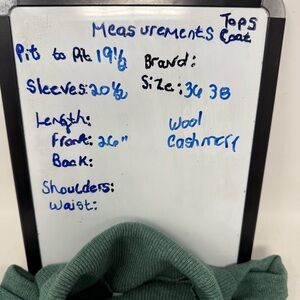 Measurements Tops Coat
Pit to Pit 19½ Brand:
Sleeves: 20½ Size: 36 38
Length: Wool
Front: 26" Cashmere
Back:
Shoulders:
Waist: